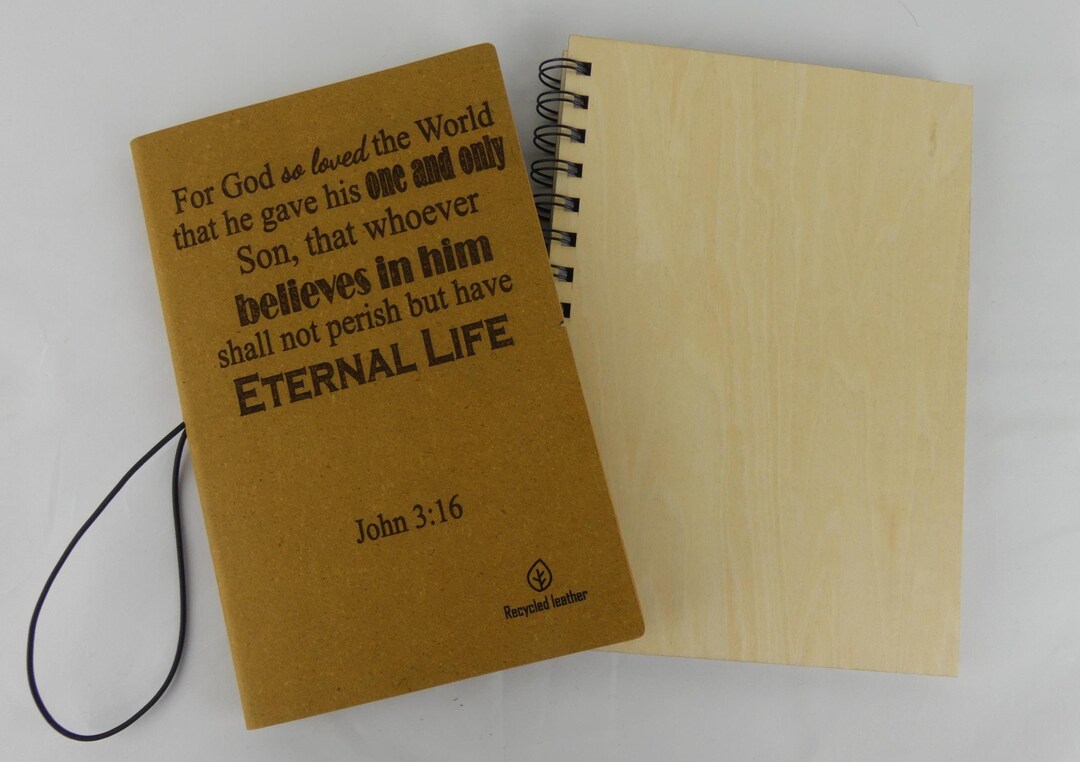 For God so loved the World
that he gave his one and only
Son, that whoever
believes in him
shall not perish but have
ETERNAL LIFE
John 3:16
Recycled leather